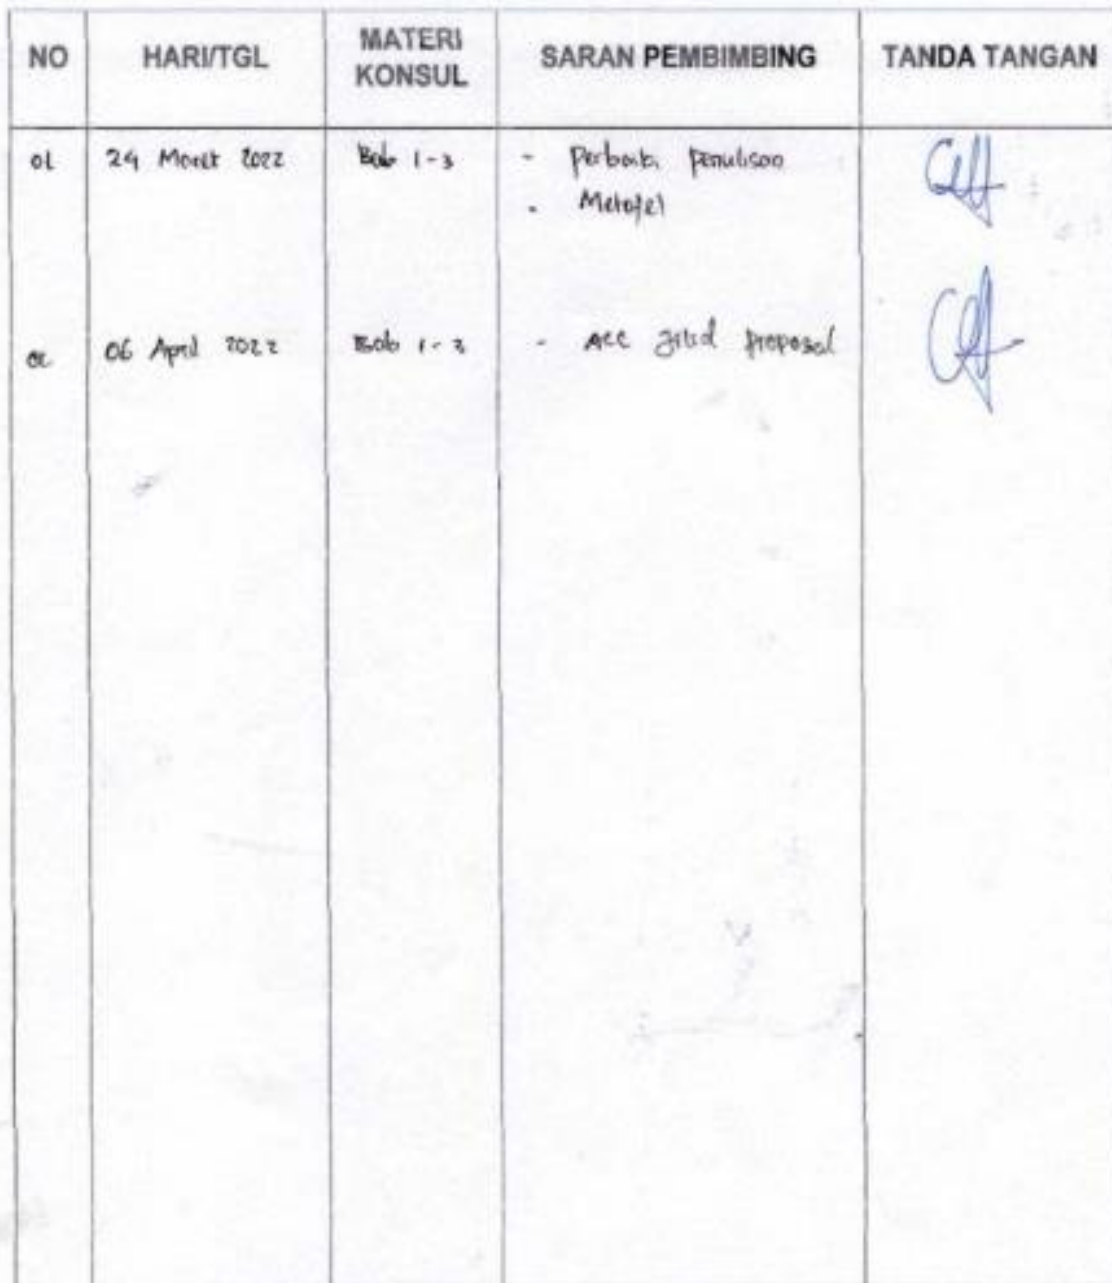 NO HARI/TGL MATERI KONSUL SARAN PEMBIMBING TANDA TANGAN
01 24 Maret 2022 Bab 1-3 - Perbaiki penulisan
- Metopel
02 06 April 2022 Bab 1-3 - Acc jilid proposal